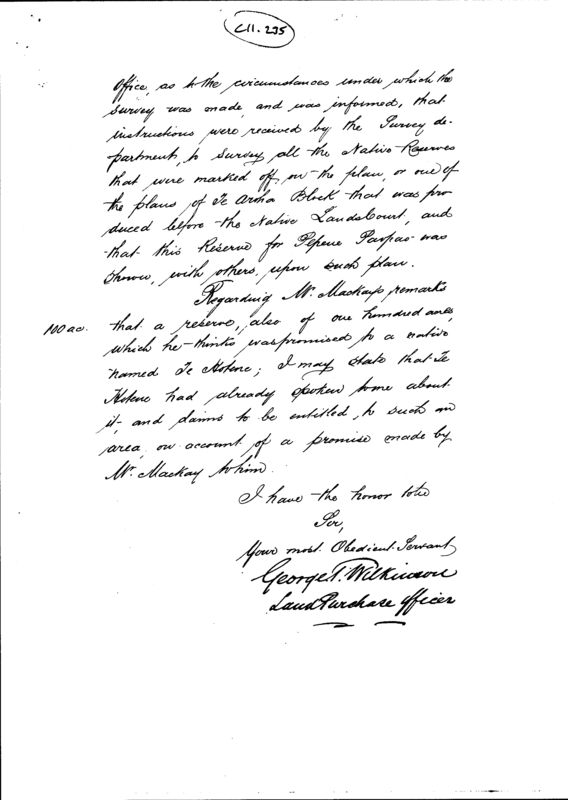 C11.235
Office, as to the circumstances under which the
survey was made, and was informed, that
instructions were received by the Survey de-
partment, to survey all the Native Reserves
that were marked off on the plan, or one of
the plans of Te Aroha Block that was pro
duced before the Native Lands Court, and
that this Reserve for Pepene was
shown, with others, upon such plan.
Regarding Mr. Mackay's remarks
100 ac.
that a reserve, also of one hundred acres,
which he thinks was promised to a native
named Te Hotene; I may state that Te
Hotene had already spoken to me about
it, and claims to be entitled, to such an
area, on account of a promise made by
Mr. Mackay to him.
I have the honor to be
Sir,
Your most Obedient Servant,
George T. Wilkinson
Land Purchase Officer